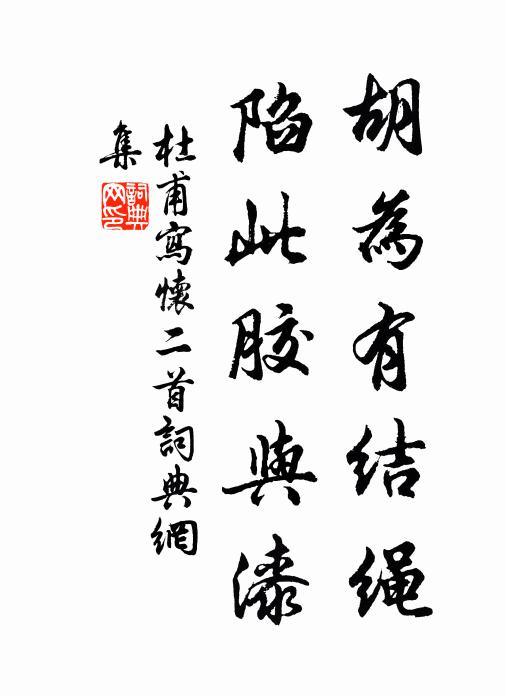 胡為有结绳
陷此胶與漆
杜甫寫懷二首詞典網
集
詞典网印